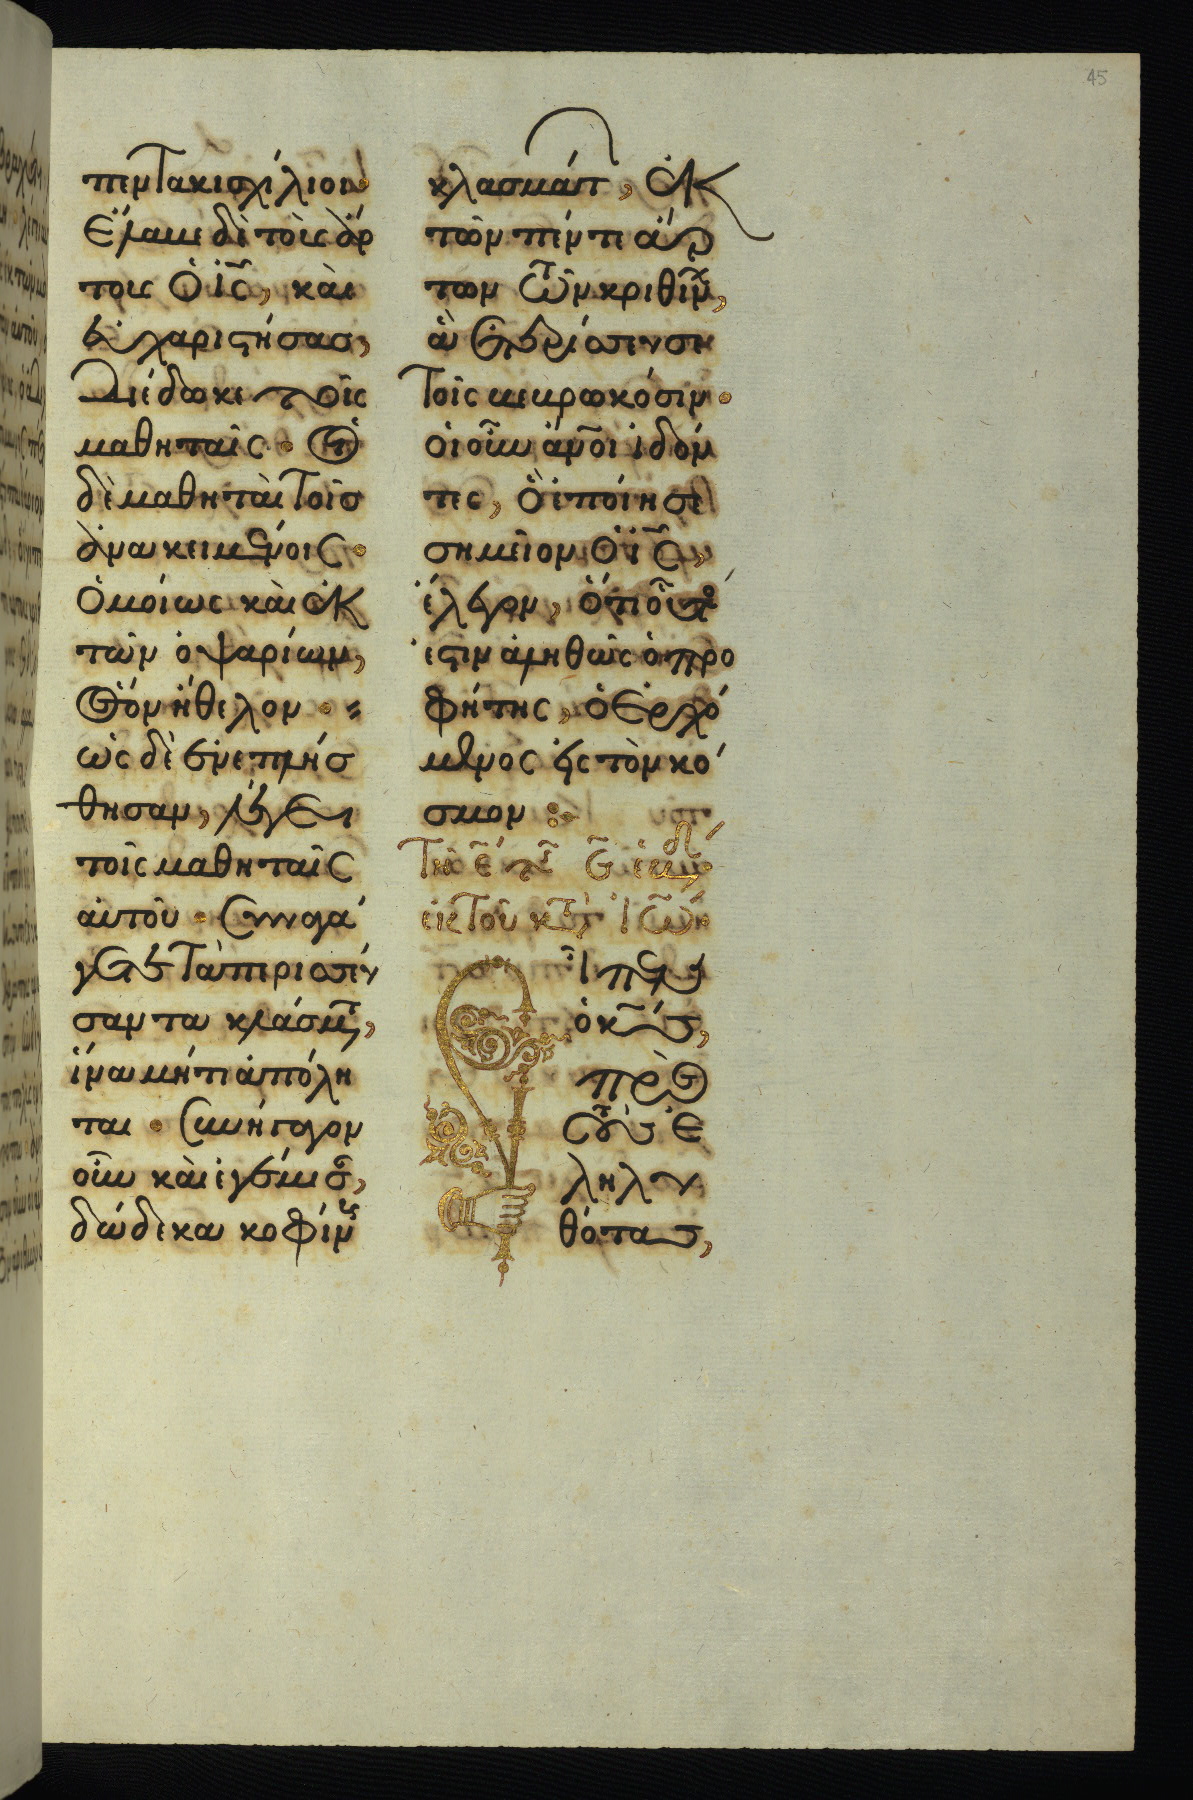 45
πεντακισχίλιοι·
Ἔλαβε δὲ τοὺς ἄρ
τους Ὁ ἸC̅, καὶ
εὐχαριστήσας,
Διέδωκε τοῖς
μαθηταῖς· Οἱ
δὲ μαθηταὶ τοῖς
ἀνακειμένοις·
Ὁμοίως καὶ ἐκ
τῶν ὀψαρίων,
Ὅσον ἤθελον·
ὡς δὲ ἐνεπλήσ
θησαν, λέγει
τοῖς μαθηταῖς
αὐτοῦ· Συναγά
γετε τὰ περισσεύ
σαντα κλάσμτ,
ἵνα μή τι ἀπόλη
ται· Συνήγαγον
οὖν καὶ ἐγέμισ,
δώδεκα κοφίν
κλασμάτ, ἐκ
τῶν πέντε ἄρ
των τῶν κριθίν,
ἃ ἐπερίσσευσε
τοῖς βεβρωκόσιν·
οἱ οὖν ἄνοι ἰδόν
τες, ὃ ἐποίησε
σημεῖον Ὁ ἸC̅,
ἔλεγον, ὅτι οὗτό
ἐστιν ἀληθῶς ὁ προ
φήτης, ὁ ἐρχό
μενος εἰς τὸν κό
σμον:
Τῇ ε̅ τ̅ ϛ̅ ἑβδ
ἐκ τοῦ κτ Ἰω̅
ἶπεν
ὁ κ̅ς,
πρὸς
τοὺς ἐ
ληλυ
θότας,